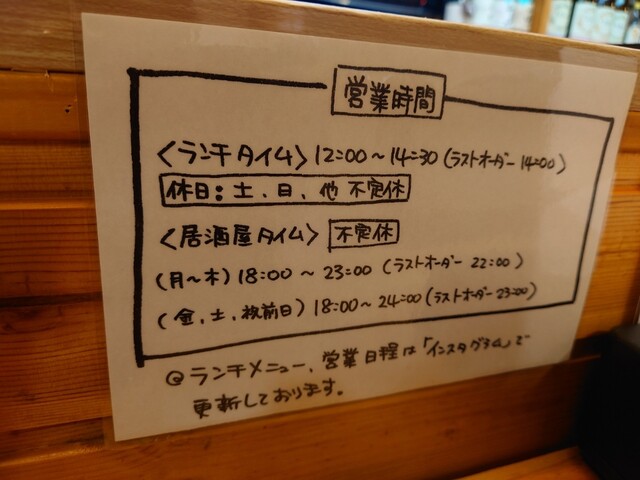 営業時間
〈ランチタイム〉12:00～14:30(ラストオーダー 14:00)
休日:土、日、他 不定休
〈居酒屋タイム〉不定休
(月～木)18:00～23:00(ラストオーダー 22:00)
(金、土、祝前日)18:00～24:00(ラストオーダー 23:00)
@ランチメニュー、営業日程は「インスタグラム」で
更新しております。